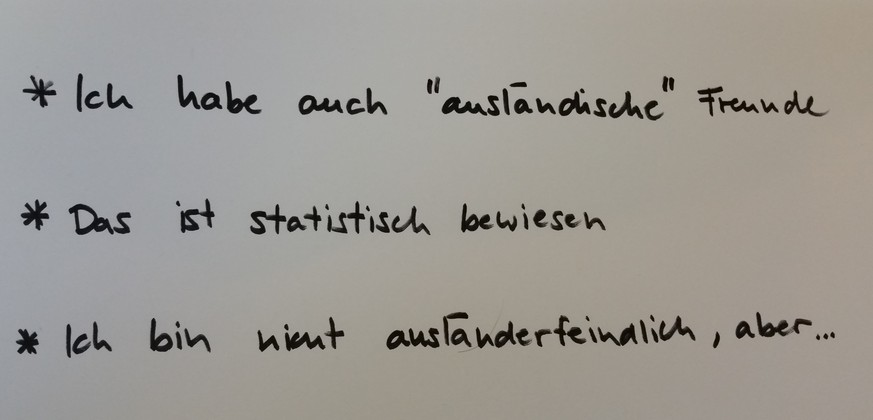 * Ich habe auch "ausländische" Freunde
* Das ist statistisch bewiesen
* Ich bin nicht ausländerfeindlich, aber...